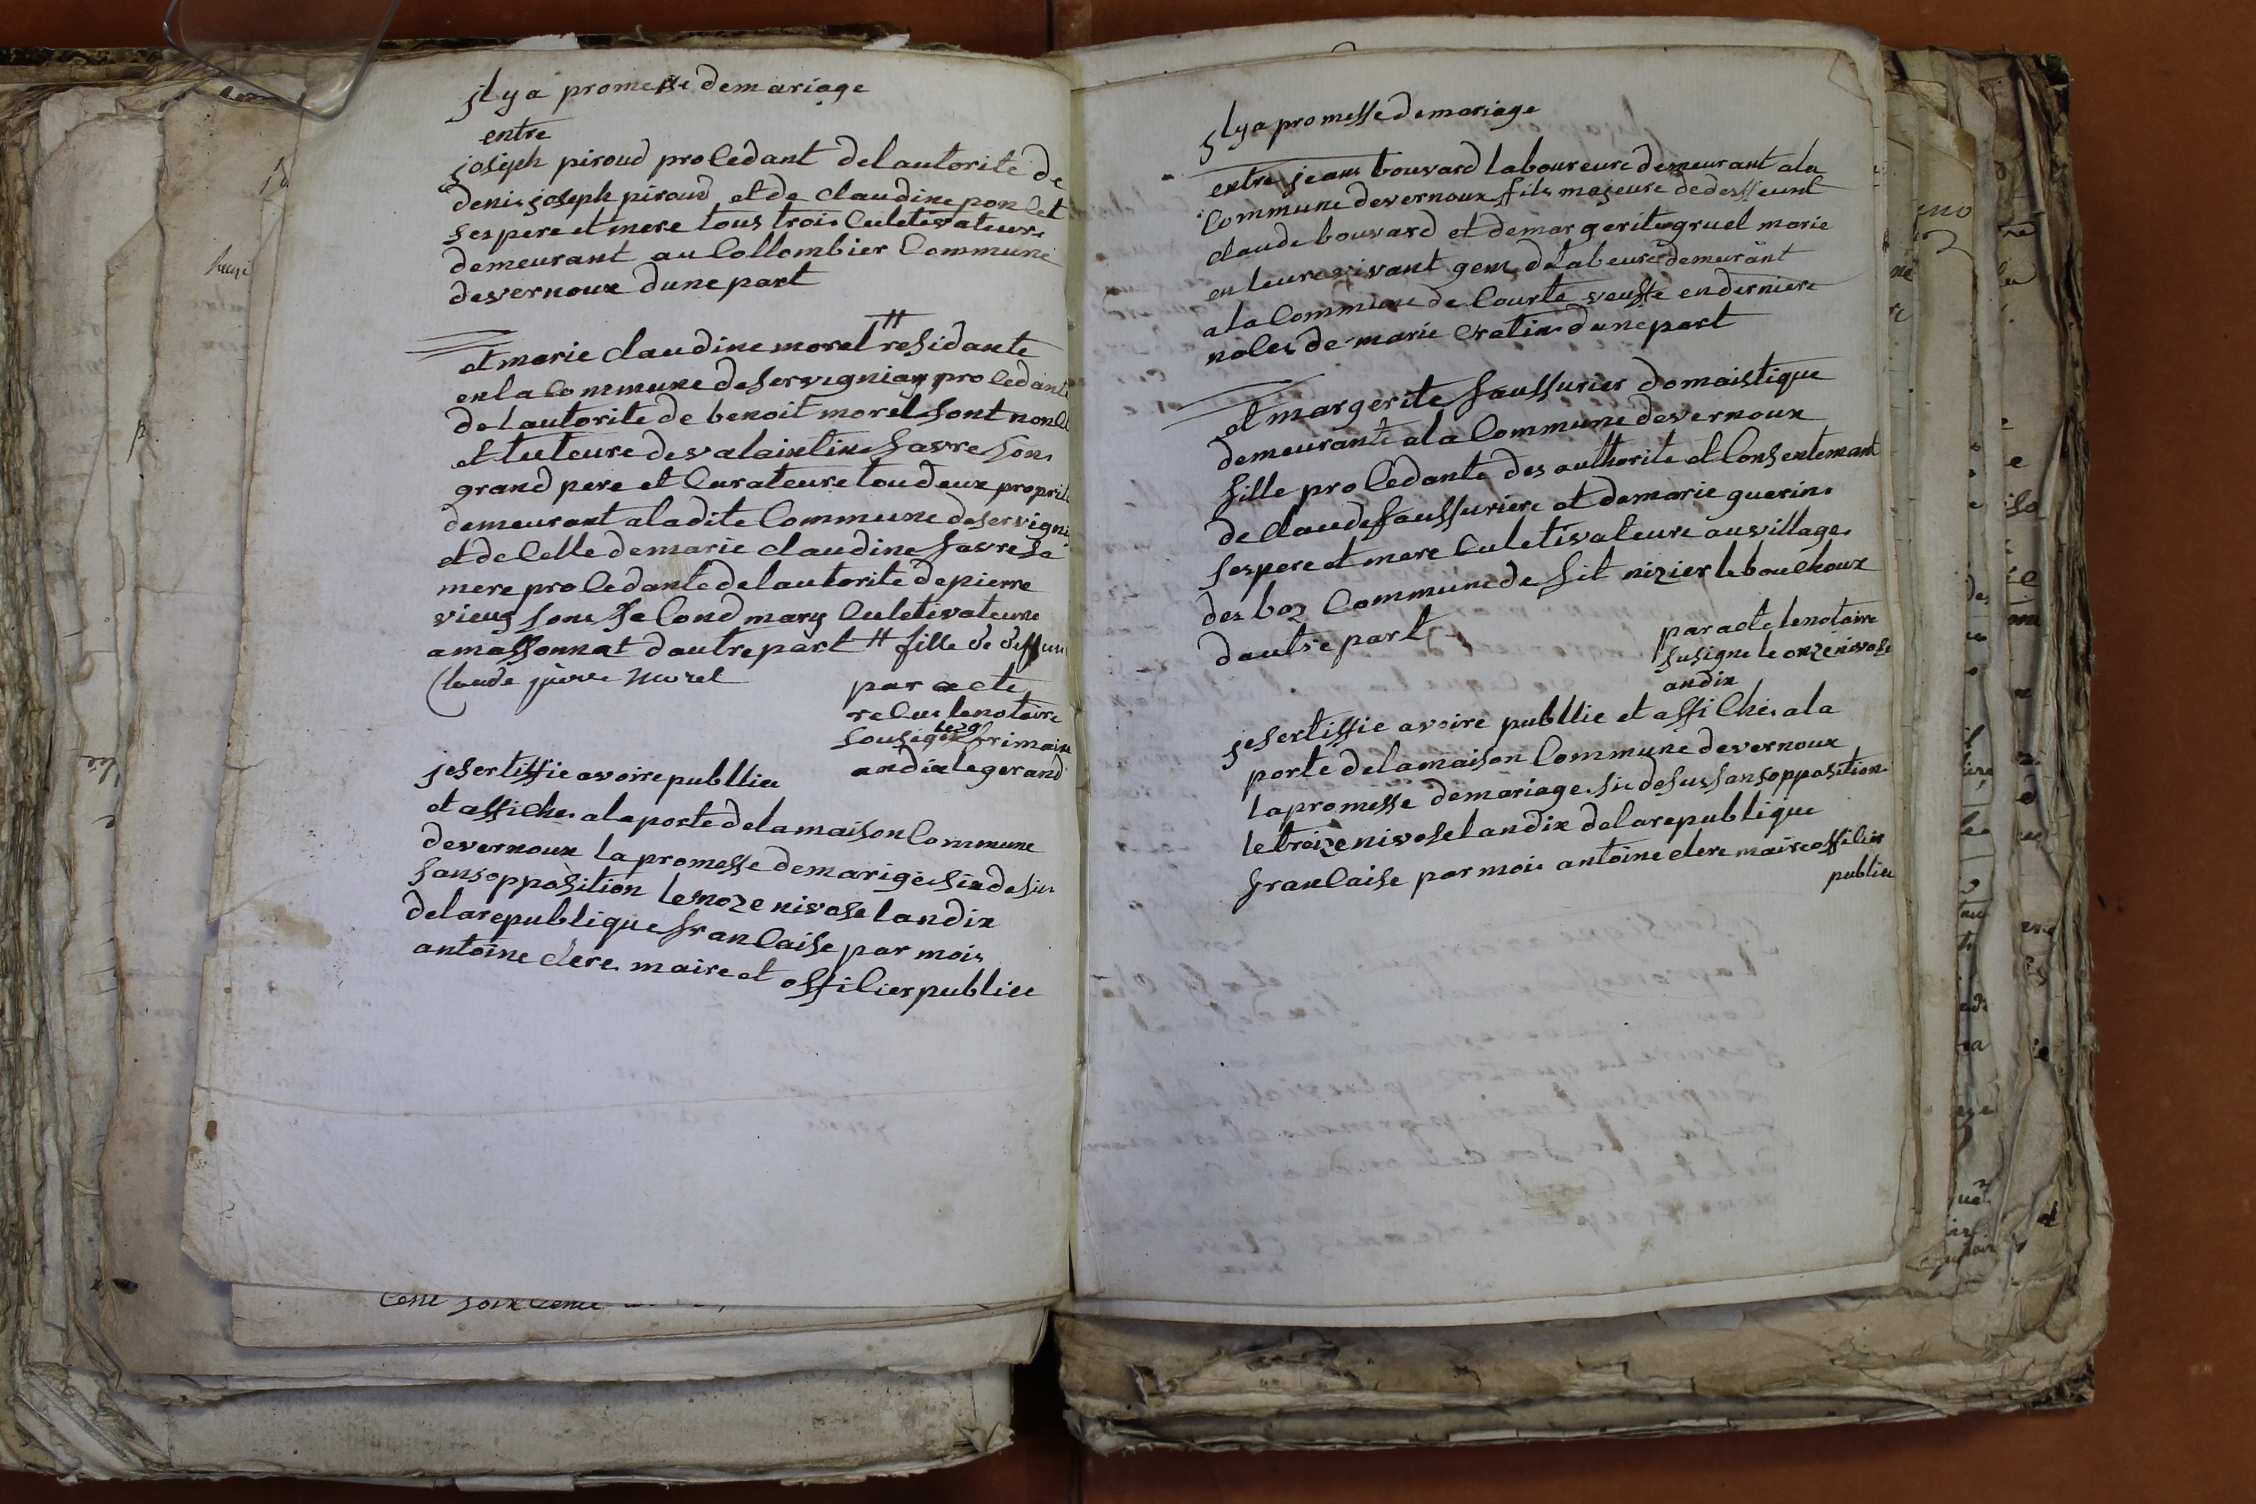 jl y a promesse demariage
entre
joseph piroud procedant delautorite de
denis joseph piroud et de claudine poncet
ses pere et mere tous trois culetivateure
demeurant au Collombier Commune
devernoux dune part
et marie claudine morel # residante
en la commune deservigniay procedante
de lautorite de benoit morel sont noncle
et tuteure devalaintin favre son
grand pere et Curateure tou deux proprite
demeurant aladite Commune deservigni
et de Celle demarie claudine favre sa
mere procedante delautorite depierre
vieux sont second mary Culetivateure
amassonnat dautre part # fille de deffun
Claude pierre Morel
par acte
recus lenotaire
sousigne le 29 frimaire
andix legerand
jesertiffie avoire publlie
et affiche alaporte delamaison Commune
devernoux lapromesse demarige siadesus
sansopposition leonze nivose landix
delarepublique francaise par mois
antoine clere maire et officier publice
jl y a promesse demariage
entre jean bouvard laboureure demeurant ala
Commune devernoux fils majeure dedeffeunt
claude bouvard et demargerite gruel marie
en leure vivant gens delabeure demeurant
ala Commune de Courte veuffe enderniere
noles de marie Cretin dune part
et margerite faussurier domaistique
demeurante ala Commune devernoux
fille procedante des authorite et Consentemant
de claude faussuriere et demarie guerin
sespere et mere Culetivateure auvillage
des boz Commune de sit nizier lebouchoux
dautre part
par acte lenotaire
susigne le onze nivose
andix
jesertiffie avoire publlie et affiche ala
porte delamaison Commune devernoux
lapromesse demariage sie desus sansopposition
letreize nivose landix delarepublique
francaise par mois antoine clere maire officier
publice